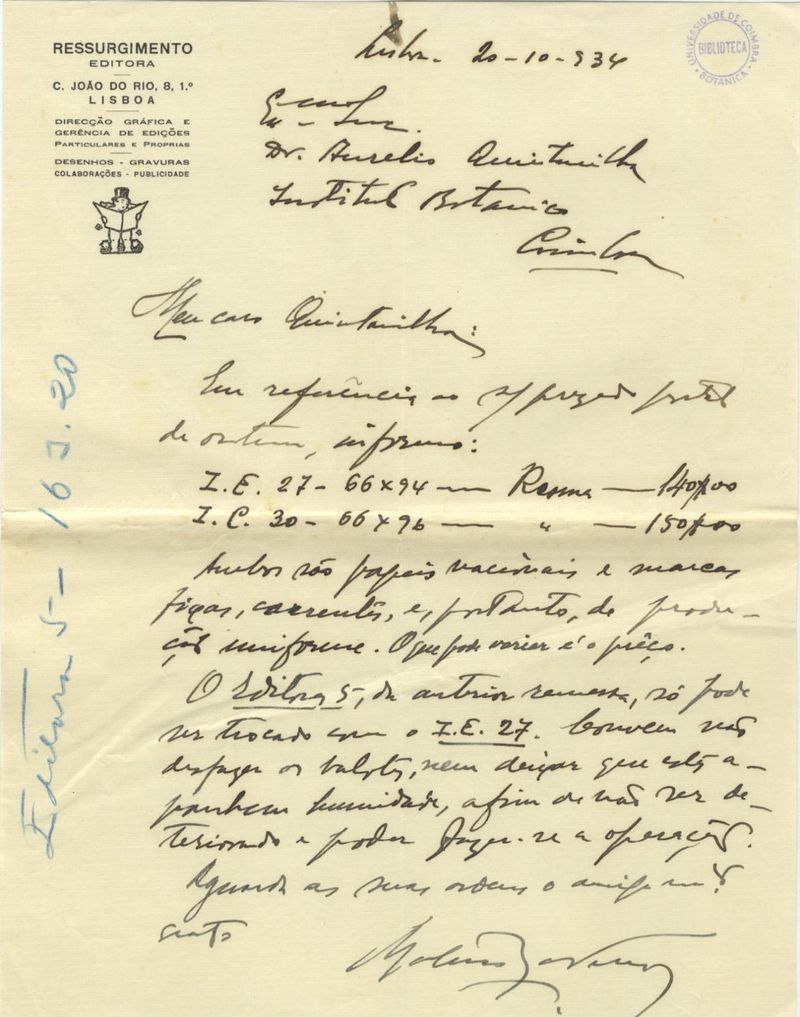 RESSURGIMENTO
EDITORA
C. JOÃO DO RIO, 8, 1.º
LISBOA
DIRECÇÃO GRÁFICA E
GERÊNCIA DE EDIÇÕES
PARTICULARES E PROPRIAS
DESENHOS - GRAVURAS
COLABORAÇÕES - PUBLICIDADE
UNIVERSIDADE DE COIMBRA
BIBLIOTECA
BOTANICA
Lisboa - 20-10-934
Exmo Snr.
Dr. Aurelio Quintanilha
Instituto Botanico
Coimbra
Meu caro Quintanilha:
Em referência ao s/ postal
de ontem, informo:
I.E. 27 - 66x94 — Resma — 140$00
I.C. 30 - 66x96 — " — 150$00
Ambos são papeis nacionais e marcas
fixas, correntes, e, portanto, de produ-
ção uniforme. O que pode variar é o prêço.
O Editora 5, da anterior remessa, só pode
ser trocado com o I.E. 27. Convem não
desfazer os balotes, nem deixar que estes a-
panhem humidade, afim de não ser de-
teriorado e poder fazer-se a operação.
Aguarda as suas ordens o amigo mto
grato
Editora 5 - 163.20